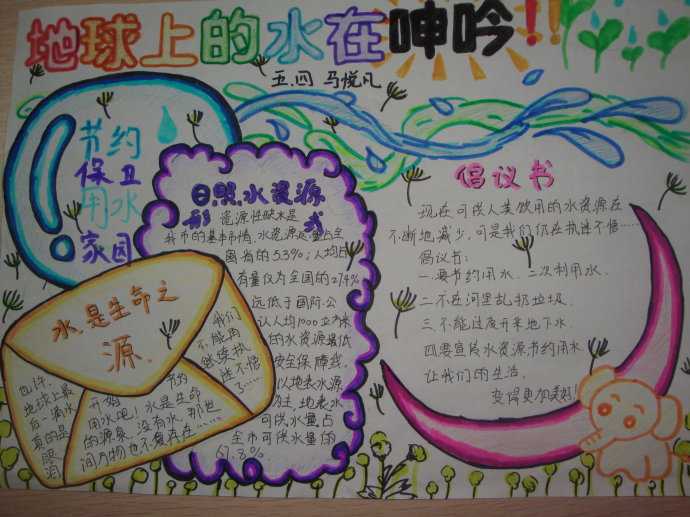 地球上的水在呻吟!!
五.四 马悦凡
节约
保卫
用水
家园
日照水资源
形 式
资源性缺水是
我市的基本市情,水资源总量占全
国有的5.3%;人均占
有量仅为全国的27.4%
远低于国际公
认人均1000立方米
的水资源最低
安全保障线。
以地表水源
为主,地表水
可供水量占
全市可供水量的
61.8%。
倡议书
现在可供人类饮用的水资源在
不断地减少,可是我们仍在执迷不悟……
倡议书:
一.要节约用水、二次利用水.
二.不在河里乱扔垃圾.
三.不能过度开采地下水.
四.要宣传水资源节约用水
让我们的生活,
变得更加美好!
水,是生命之
源.
也许,
地球上最
后一滴水
真的是
眼泪
开始 节约
用水吧!水是生命
的源泉,没有水,那世
间万物也不复存在……
我们
不能再
继续执
迷不悟
了……